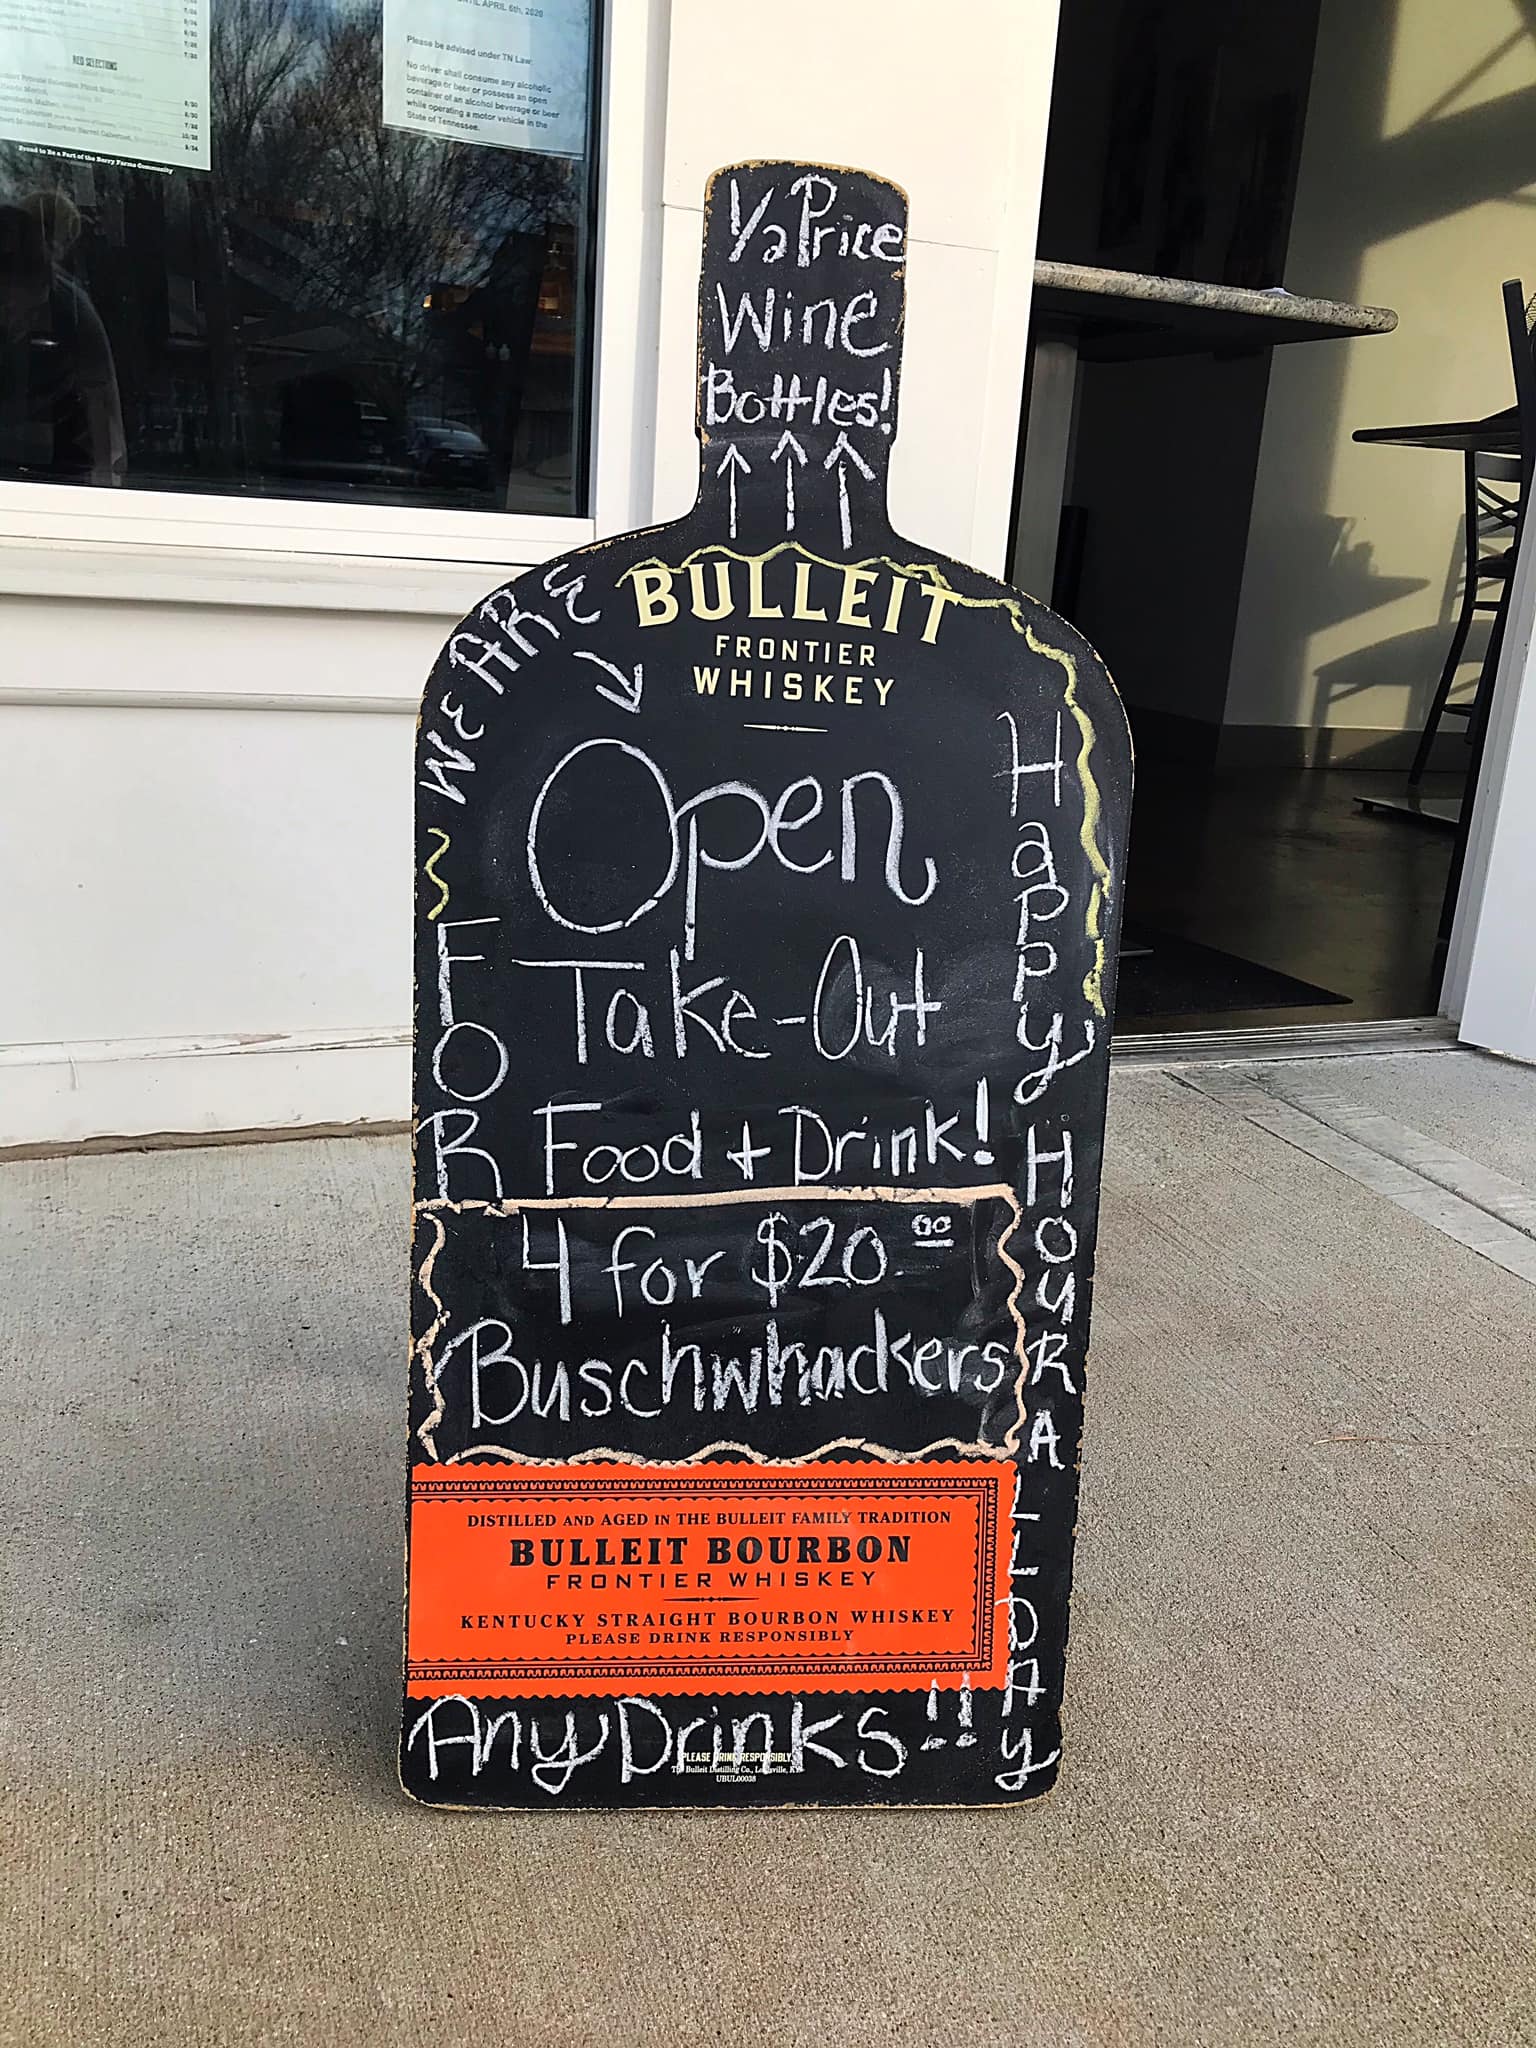 RED SELECTIONS
Proud to Be a Part of the Berry Farms Community
APRIL 6th, 2020
Please be advised under TN Law:
No driver shall consume any alcoholic
beverage or beer or possess an open
container of an alcohol beverage or beer
while operating a motor vehicle in the
State of Tennessee.
1/2 Price
Wine
Bottles!
WE ARE
BULLEIT
FRONTIER
WHISKEY
Open
FOR
Take-Out
Food + Drink!
4 for $20.00
Buschwhackers
Happy HOUR ALL DAY
DISTILLED AND AGED IN THE BULLEIT FAMILY TRADITION
BULLEIT BOURBON
FRONTIER WHISKEY
KENTUCKY STRAIGHT BOURBON WHISKEY
PLEASE DRINK RESPONSIBLY
Any Drinks!!
PLEASE DRINK RESPONSIBLY.
The Bulleit Distilling Co., Louisville, KY
UBUL00038